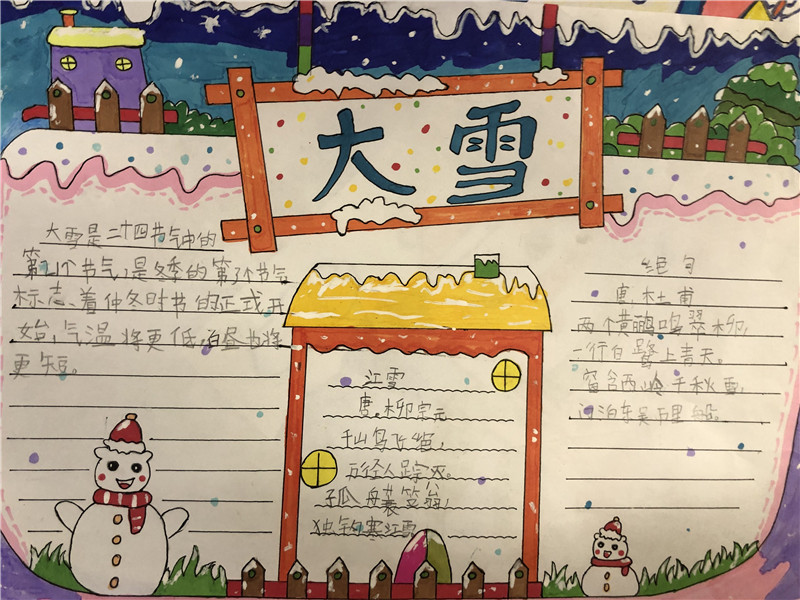 大雪
大雪是二十四节气中的
第21个节气,是冬季的第3个节气
标志着仲冬时节的正式开
始,气温将更低,白昼也将
更短。
江雪
唐.柳宗元
千山鸟飞绝,
万径人踪灭。
孤舟蓑笠翁,
独钓寒江雪
绝句
唐.杜甫
两个黄鹂鸣翠柳,
一行白鹭上青天。
窗含西岭千秋雪,
门泊东吴万里船。